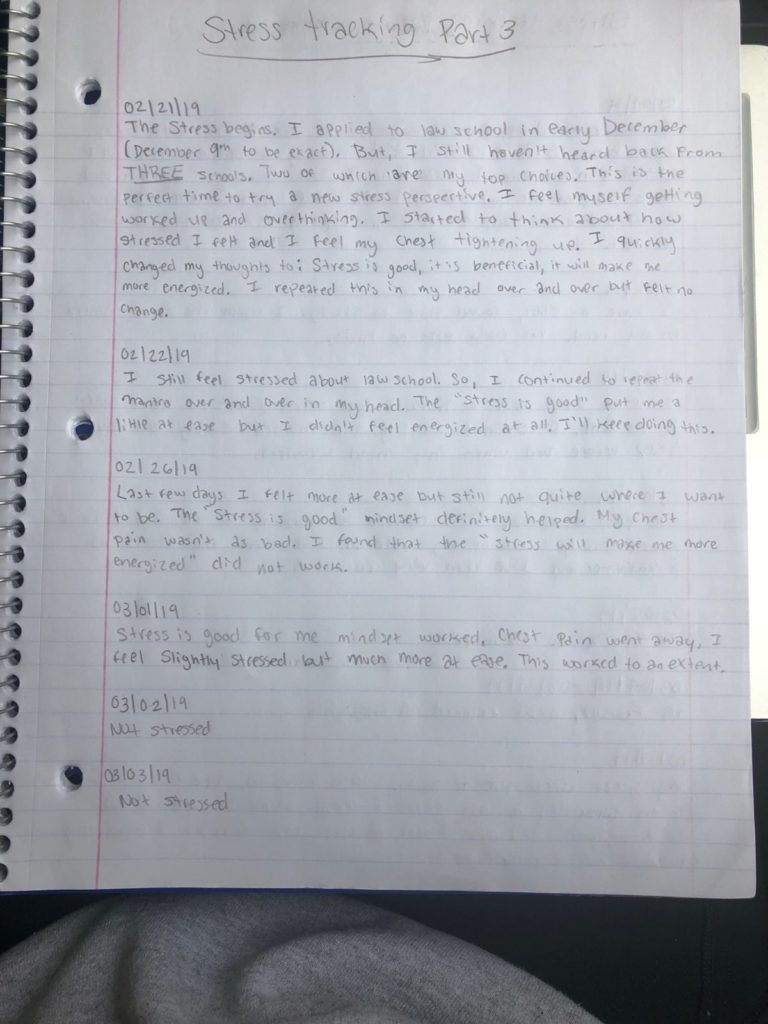 Stress tracking Part 3
02/21/19
The Stress begins. I applied to law school in early December
(December 9th to be exact). But, I still haven't heard back from
THREE schools. Two of which are my top choices. This is the
perfect time to try a new stress perspective. I feel myself getting
worked up and overthinking. I started to think about how
stressed I felt and I feel my chest tightening up. I quickly
changed my thoughts to: Stress is good, it is beneficial, it will make me
more energized. I repeated this in my head over and over but felt no
change.
02/22/19
I still feel stressed about law school. So, I continued to repeat the
mantra over and over in my head. The "stress is good" put me a
little at ease but I didn't feel energized at all. I'll keep doing this.
02/26/19
Last few days I felt more at ease but still not quite where I want
to be. The "Stress is good" mindset definitely helped. My chest
pain wasn't as bad. I found that the "stress will make me more
energized" did not work.
03/01/19
Stress is good for me mindset worked. Chest pain went away, I
feel slightly stressed but much more at ease. This worked to an extent.
03/02/19
Not stressed
03/03/19
Not stressed